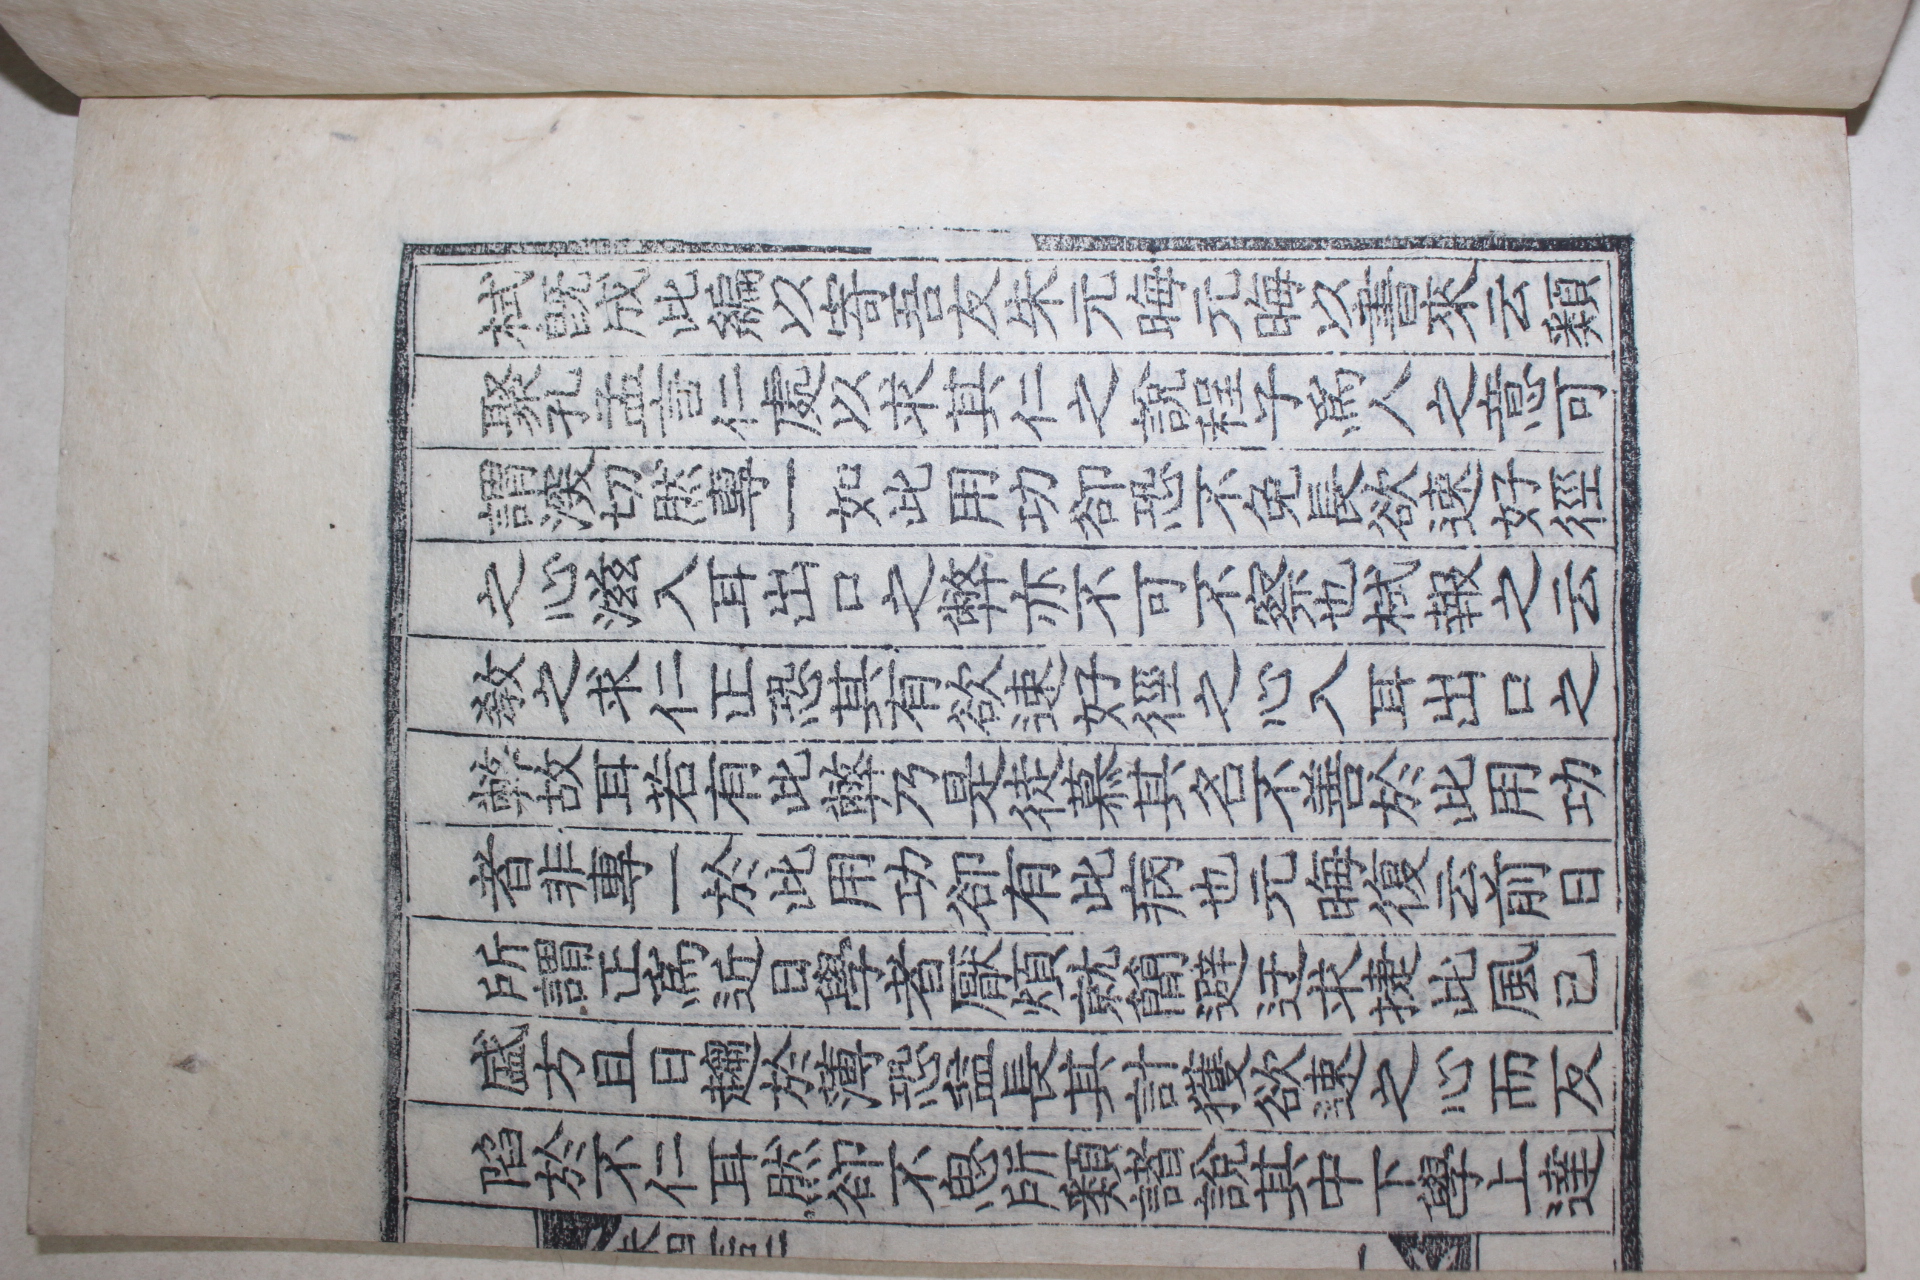 栻既成此編以寄吾友朱元晦元晦以書來云類
聚孔孟言仁處以求其仁之說程子爲人之意可
謂深切然專一如此用功卻恐不免長欲速好徑
之心滋入耳出口之弊亦不可不察也栻報之云
教之求仁正恐其有欲速好徑之心入耳出口之
弊故耳若有此弊乃是徒慕其名不善於此用功
者非專一於此用功卻有此病也元晦復云前日
所謂正爲近日學者厭煩就簡避迂求捷此風已
盛方且日趨於薄恐益長其計獲欲速之心而反
陷於不仁耳然卻不思所類諸說其中下學上達